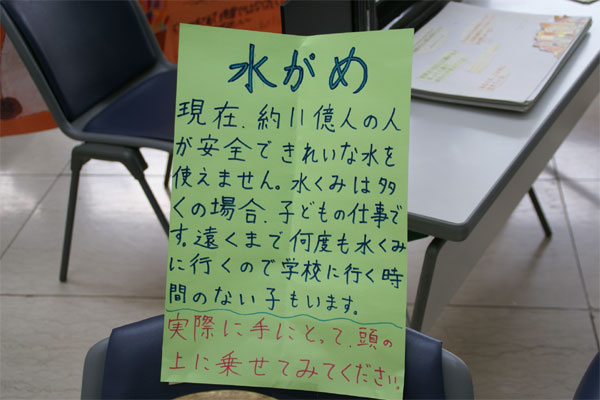 水がめ
現在、約11億人の人
が安全できれいな水を
使えません。水くみは多
くの場合、子どもの仕事で
す。遠くまで何度も水くみ
に行くので学校に行く時
間のない子もいます。
実際に手にとって、頭の
上に乗せてみてください。